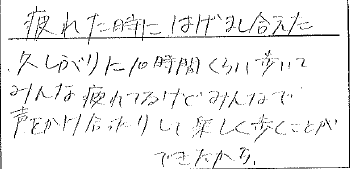 疲れた時にはげまし合えた
久しぶりに10時間くらい歩いて
みんな疲れてるけどみんなで
声をかけ合ったりして楽しく歩くことが
できたから。